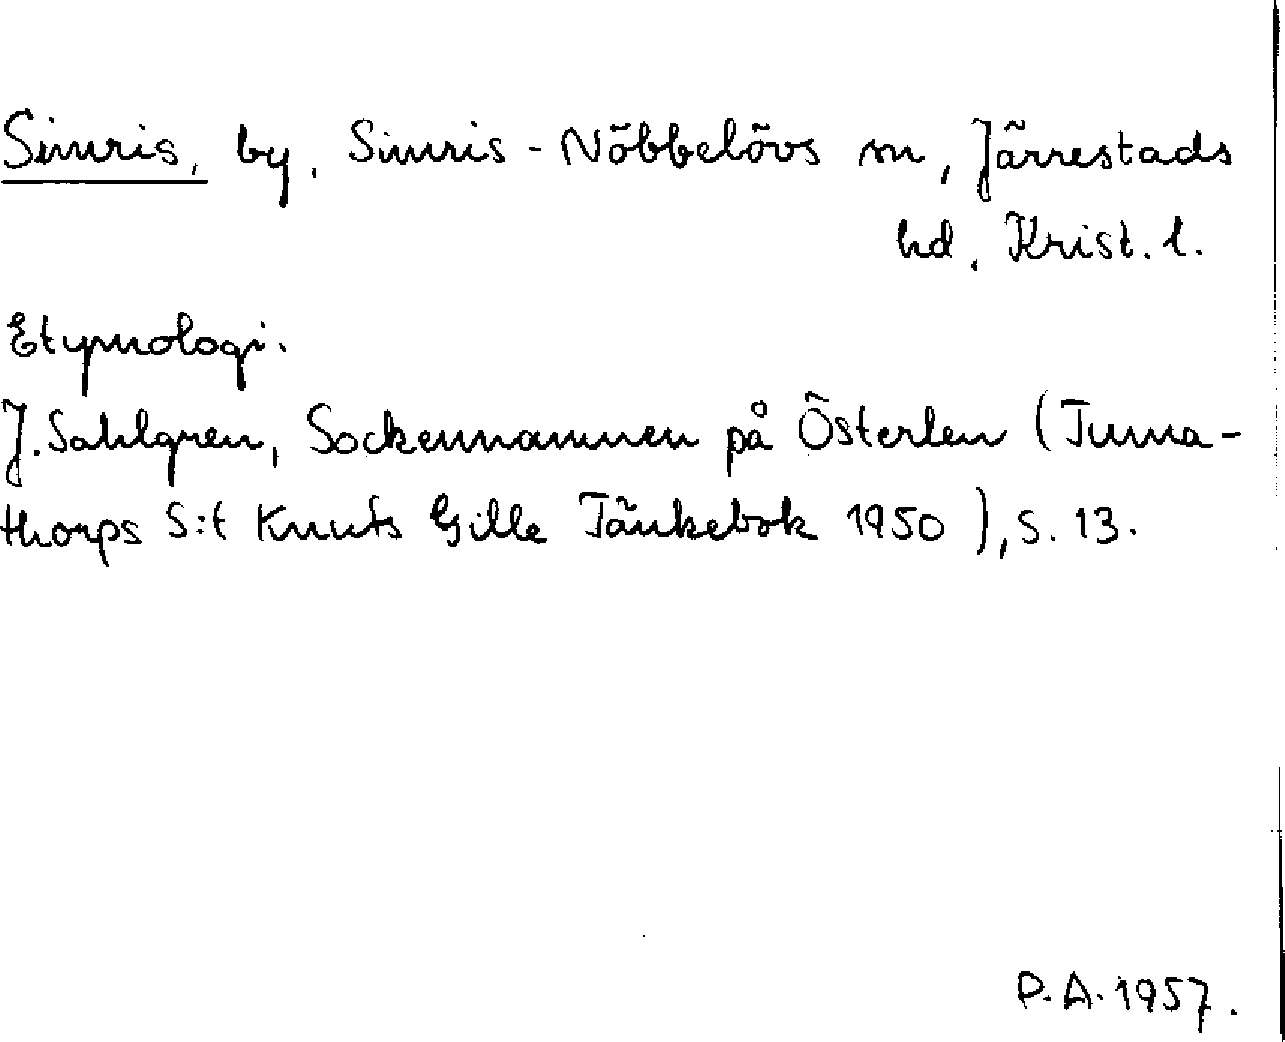 Simris, by, Simris-Nöbbelövs sn, Järrestads
hd, Krist. l.
Etymologi.
J. Sahlgren, Sockennamnen på Österlen (Tuma-
thorps S:t Knuts Gille Tänkebok 1950), s. 13.
P.A. 1957.